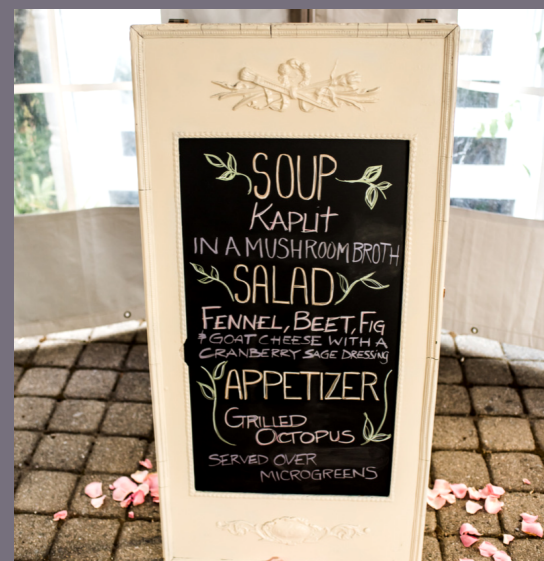 SOUP
KAPLIT
IN A MUSHROOM BROTH
SALAD
FENNEL, BEET, FIG
& GOAT CHEESE WITH A
CRANBERRY SAGE DRESSING
APPETIZER
GRILLED
OCTOPUS
SERVED OVER
MICROGREENS